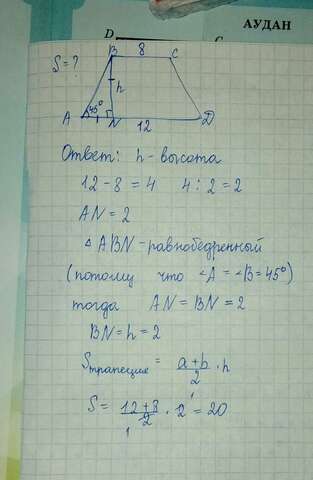 АУДАН
D
B 8 C
S = ?
h
45°
A N 12 D
Ответ: h - высота
12 - 8 = 4 4 : 2 = 2
AN = 2
△ ABN - равнобедренный
(потому что ∠A = ∠B = 45°)
тогда AN = BN = 2
BN = h = 2
Sтрапеция = a + b / 2 · h
S = 12 + 8 / 2 · 2 = 20
1 1